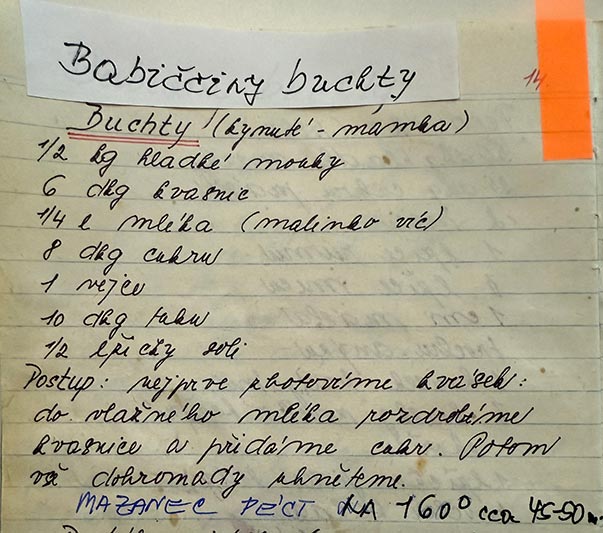 Babiččiny buchty
14.
Buchty (kynuté - mámka)
1/2 kg hladké mouky
6 dkg kvasnic
1/4 l mléka (malinko víc)
8 dkg cukru
1 vejce
10 dkg tuku
1/2 lžičky soli
Postup: nejprve zhotovíme kvásek:
do vlažného mléka rozdrobíme
kvasnice a přidáme cukr. Potom
vše dohromady uhněteme.
MAZANEC PÉCT NA 160° cca 45-50 m.